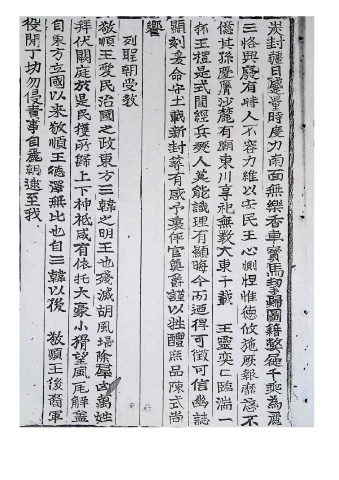 炭封疆日蹙量時度力南面無樂香車寶馬挈歸圖籍從千乘為麗
三恪興廢有時人不容力維以安民王心則惟德攸施厥報靡不
億其孫慶膺沙麓有廟東川享祀無數大東千載 王靈奕匕臨湍一
抔王禮是式間經兵燹人莫能識理有顯晦今而適得可徵可信幽誌
顯刻爰命守土載新封有感予衷伻官奠爵謹以牲醴庶品陳式尚
饗
列聖朝受教
敬順王愛民治國之政東方三韓之明王也殘滅胡風掃除群凶萬姓
拜伏闕庭於是民獲所歸上下神祗咸有依托大豪小猾望風瓦解盖
自東方立國以來敬順王德澤無比也自三韓以後 敬順王後裔軍
役閑丁切勿侵責事自麗朝逮至我